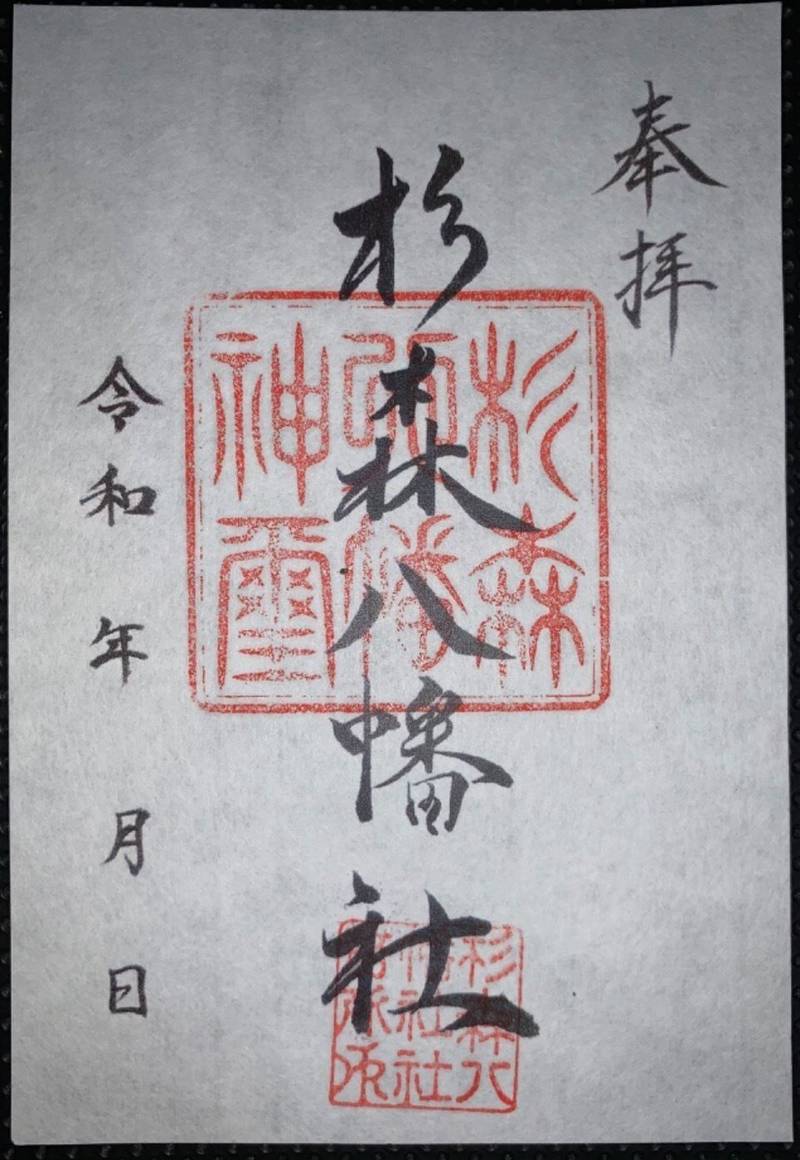 奉拝
杉森八幡社
令和 年 月 日
杉森
幡
神璽
杉森八
幡社社
務所印